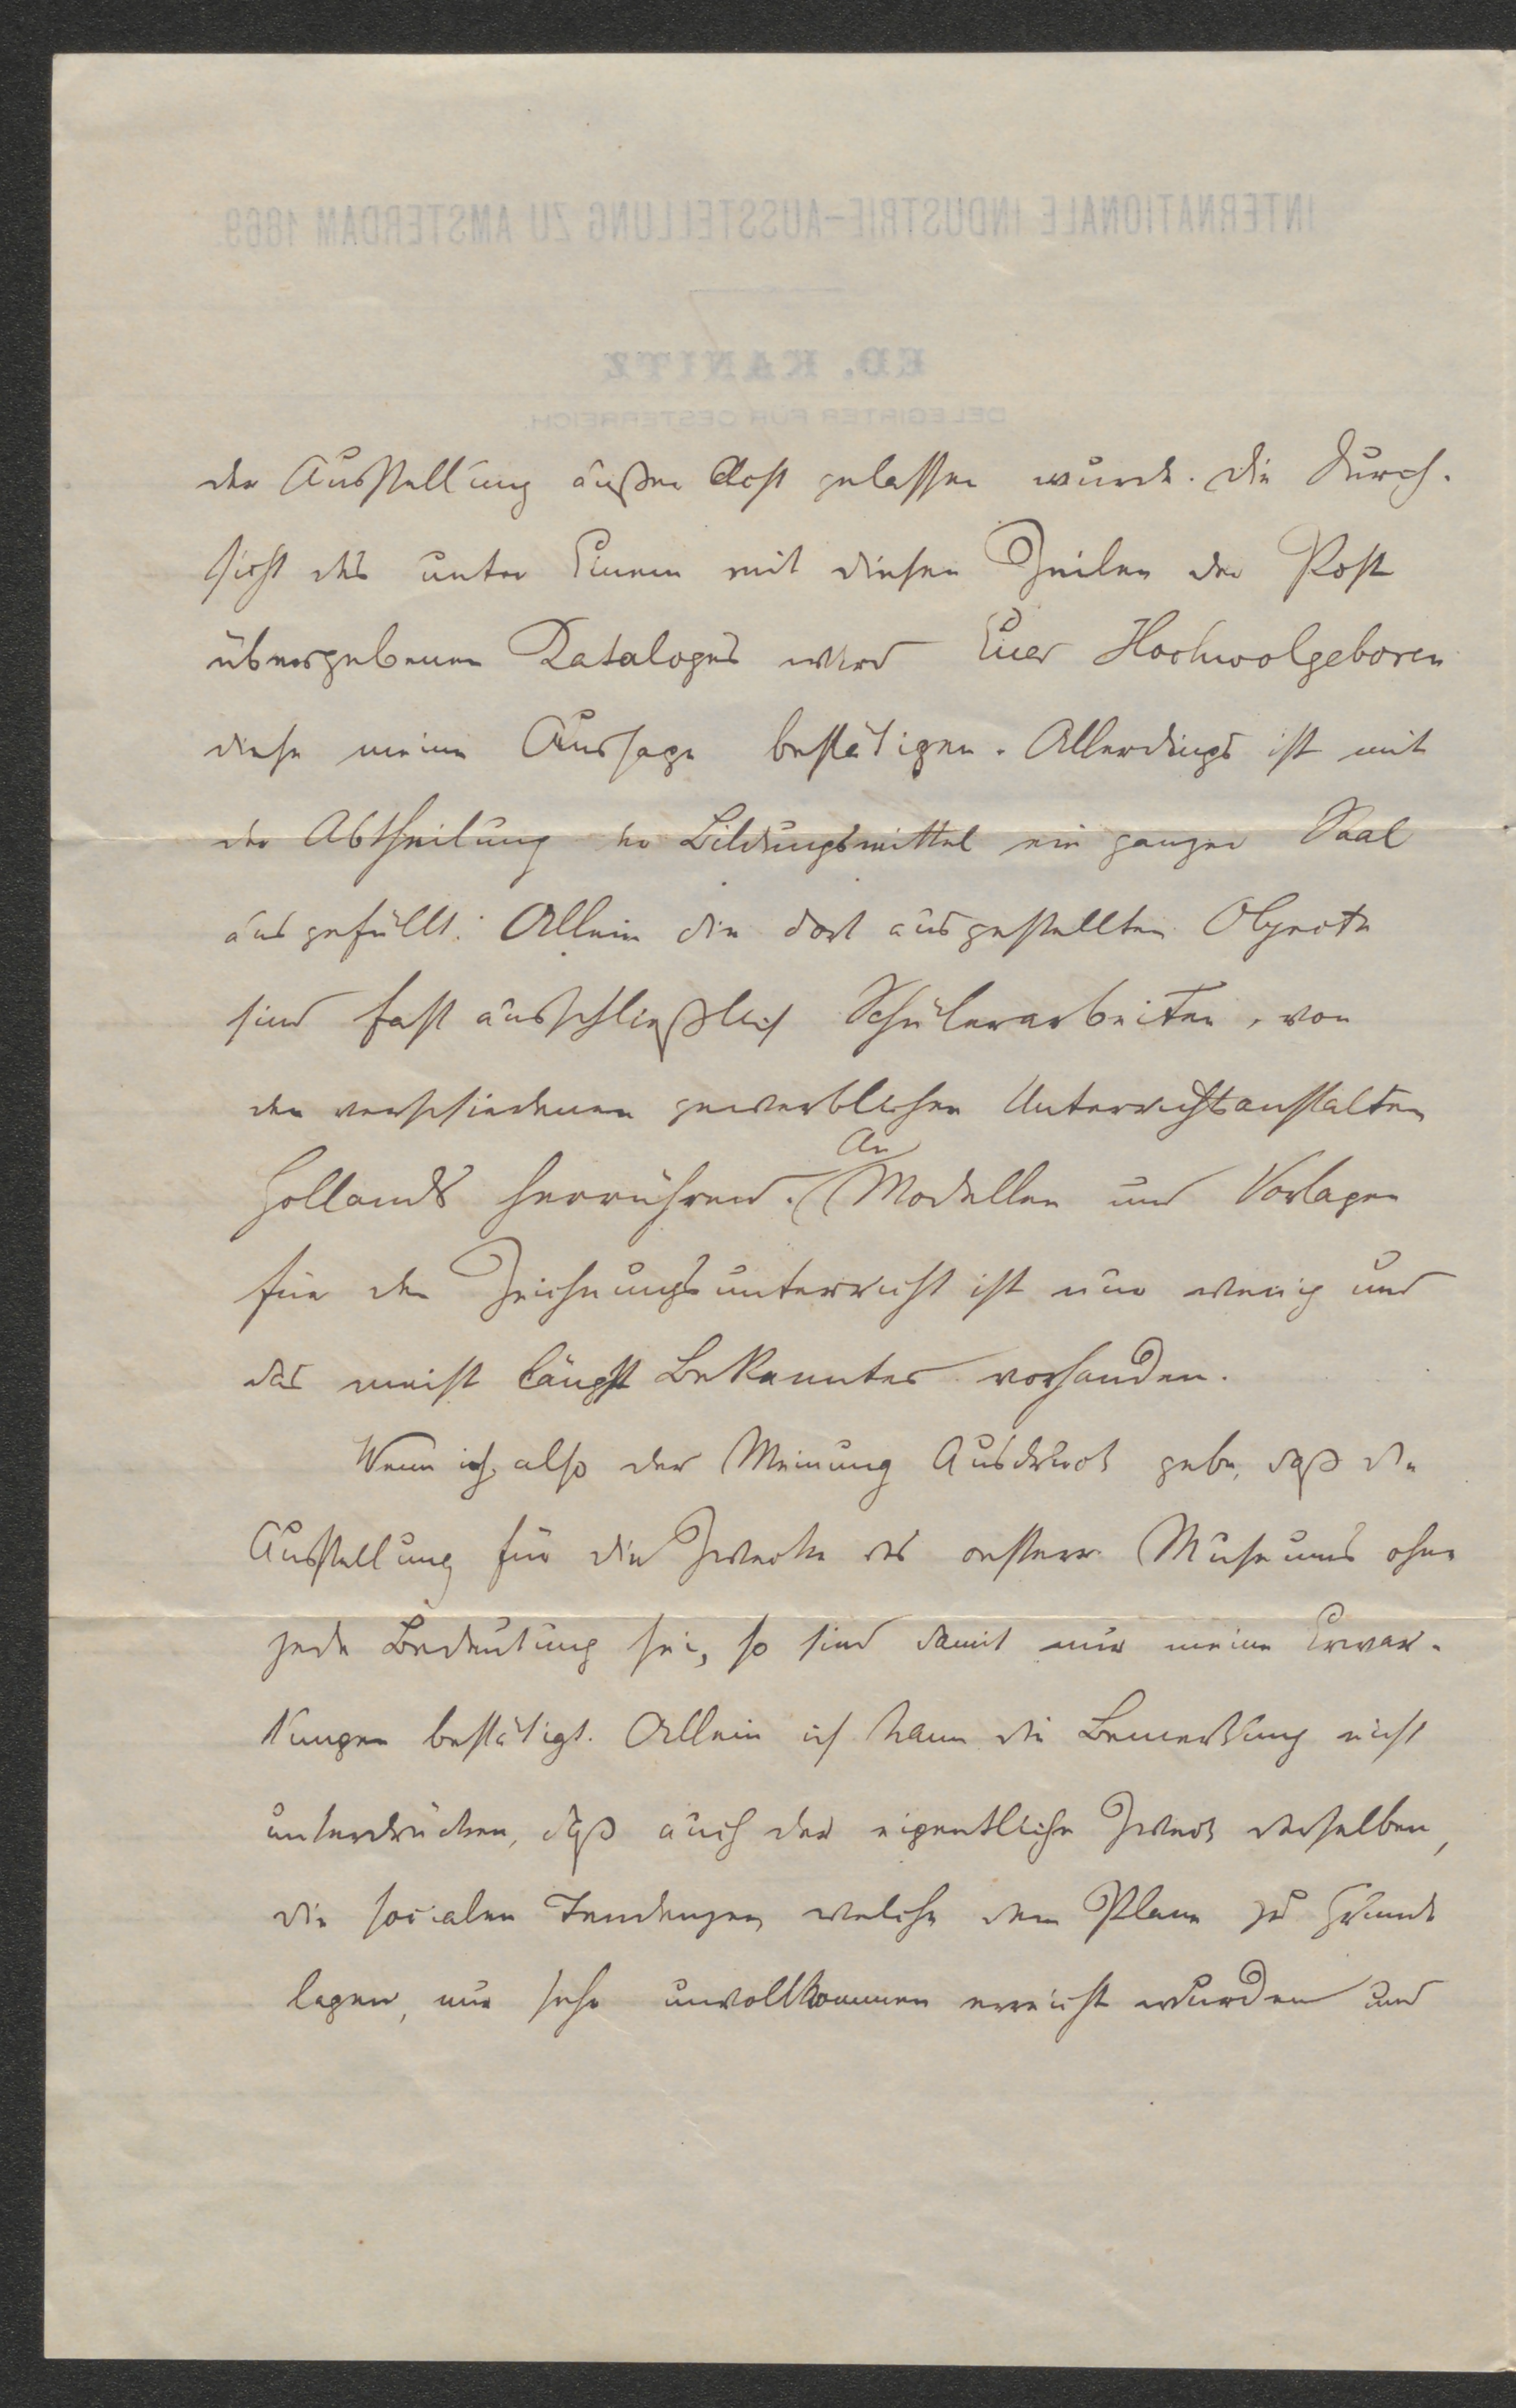 INTERNATIONALE INDUSTRIE-AUSSTELLUNG ZU AMSTERDAM 1869.
ED. KANITZ
DELEGIRTER FÜR OESTERREICH.
der Ausstellung außer Acht gelassen wurde. Die Durch-
sicht des unter Einem mit diesen Zeilen der Post
übergebenen Kataloges wird Euer Hochwolgeboren
diese meine Aussage bestätigen. Allerdings ist mit
der Abtheilung der Bildungsmittel ein ganzer Saal
ausgefüllt. Allein die dort ausgestellten Objecte
sind fast ausschließlich Schülerarbeiten, von
den verschiedenen gewerblichen Unterrichtsanstalten
An
Hollands herrührend. Modellen und Vorlagen
für den Zeichnungsunterricht ist nur wenig und
das meist längst Bekanntes vorhanden.
Wenn ich also der Meinung Ausdruck gebe, daß die
Ausstellung für die Zwecke des oesterr. Museums ohne
jede Bedeutung sei, so sind damit nur meine Erwar-
tungen bestätigt. Allein ich kann die Bemerkung nicht
unterdrücken, daß auch der eigentliche Zweck derselben,
die socialen Tendenzen welche dem Plane zu Grunde
lagen, nur sehr unvollkommen erreicht wurden und